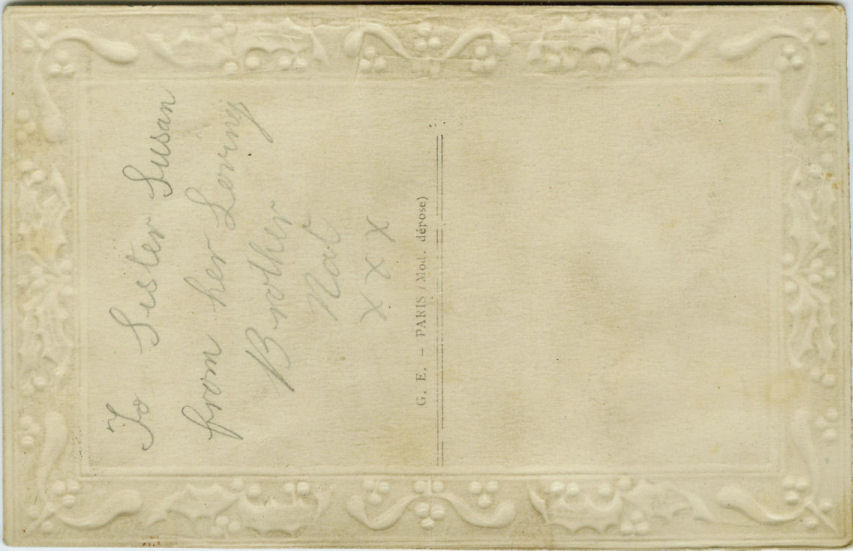 To Sister Susan
from her Loving
Brother
Nat
X X X
G. E. – PARIS (Mod. dérose)